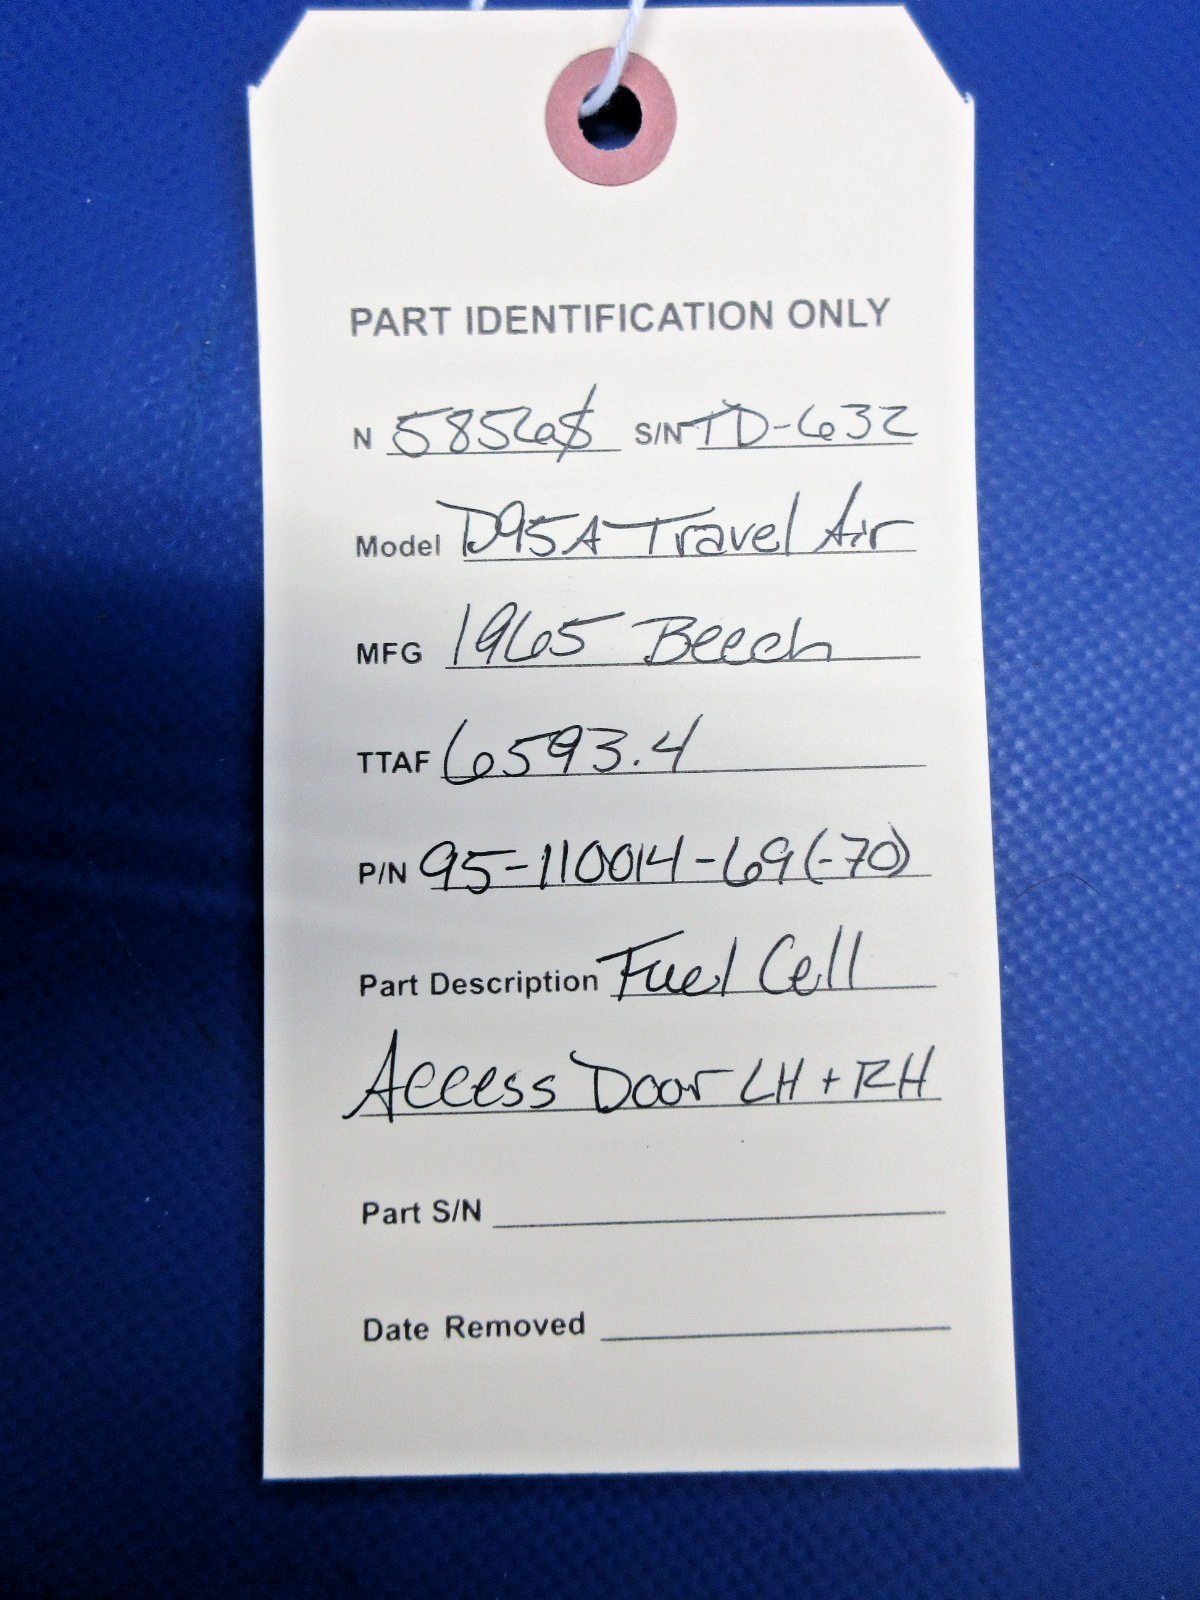 PART IDENTIFICATION ONLY
N 5856S S/N TD-632
Model D95A Travel Air
MFG 1965 Beech
TTAF 6593.4
P/N 95-110014-69(-70)
Part Description Fuel Cell
Access Door LH + RH
Part S/N
Date Removed